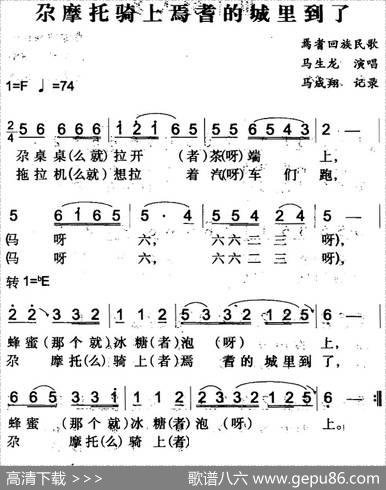 尕摩托骑上焉耆的城里到了
焉耆回族民歌
马生龙 演唱
1=F ♩=74
马成翔 记录
2/4 5 6 6 6 6 | 1 2 1 6 5 | 5 5 6 5 4 3 | 2 — |
尕桌桌(么就)拉开 (者)茶(呀)端 上,
拖拉机(么就)想拉 着 汽(呀)车 们 跑,
5 6 1 6 5 | 5 · 4 | 5 5 4 2 4 | 5 — |
(马 呀 六, 六六二三 呀),
(马 呀 六, 六六二三 呀),
转1=♭E
2 2 3 3 2 | 1 1 2 | 5 5 3 2 3 1 2 | 2 — |
蜂蜜(那个就)冰糖(者)泡 (呀) 上,
尕 摩托(么)骑上(者)焉 耆的城里到了,
6 6 5 3 3 1 | 5 5 1 | 2 2 3 3 2 1 5 | 6 — :|
蜂蜜 (那个就)冰糖(者)泡 (呀) 上。
尕 摩托(么)骑上(者)
高清下载 >>>
歌谱八六 www.gepu86.com